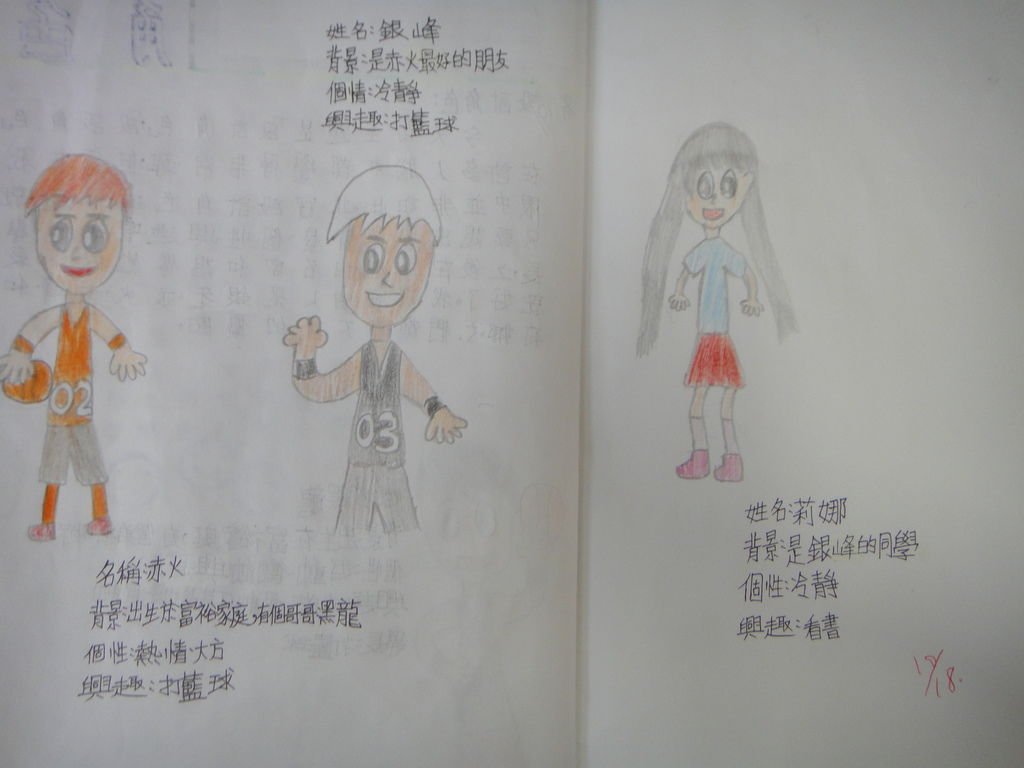 姓名:銀峰
背景:是赤火最好的朋友
個情:冷靜
興趣:打籃球
02
03
名稱:赤火
背景:出生於富裕家庭,有個哥哥黑龍
個性:熱情大方
興趣:打籃球
姓名:莉娜
背景:是銀峰的同學
個性:冷靜
興趣:看書